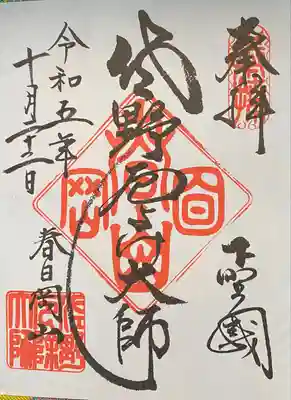 奉拝
下野國
佐野厄よけ大師
令和五年
十月二十二日
春日岡山